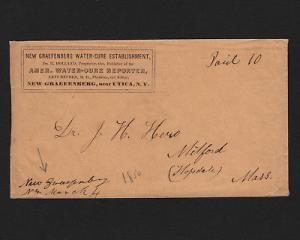 NEW GRAEFENBERG WATER-CURE ESTABLISHMENT,
Dr. R. HOLLAND, Proprietor, also, Publisher of the
AMER. WATER-CURE REPORTER,
M. D., Physician, and Editor,
NEW GRAEFENBERG, near UTICA, N.Y.
Paid 10
Dr. J. H. Hero
Milford
(Hopedale)
Mass.
New Graefenberg
N.Y. March 4